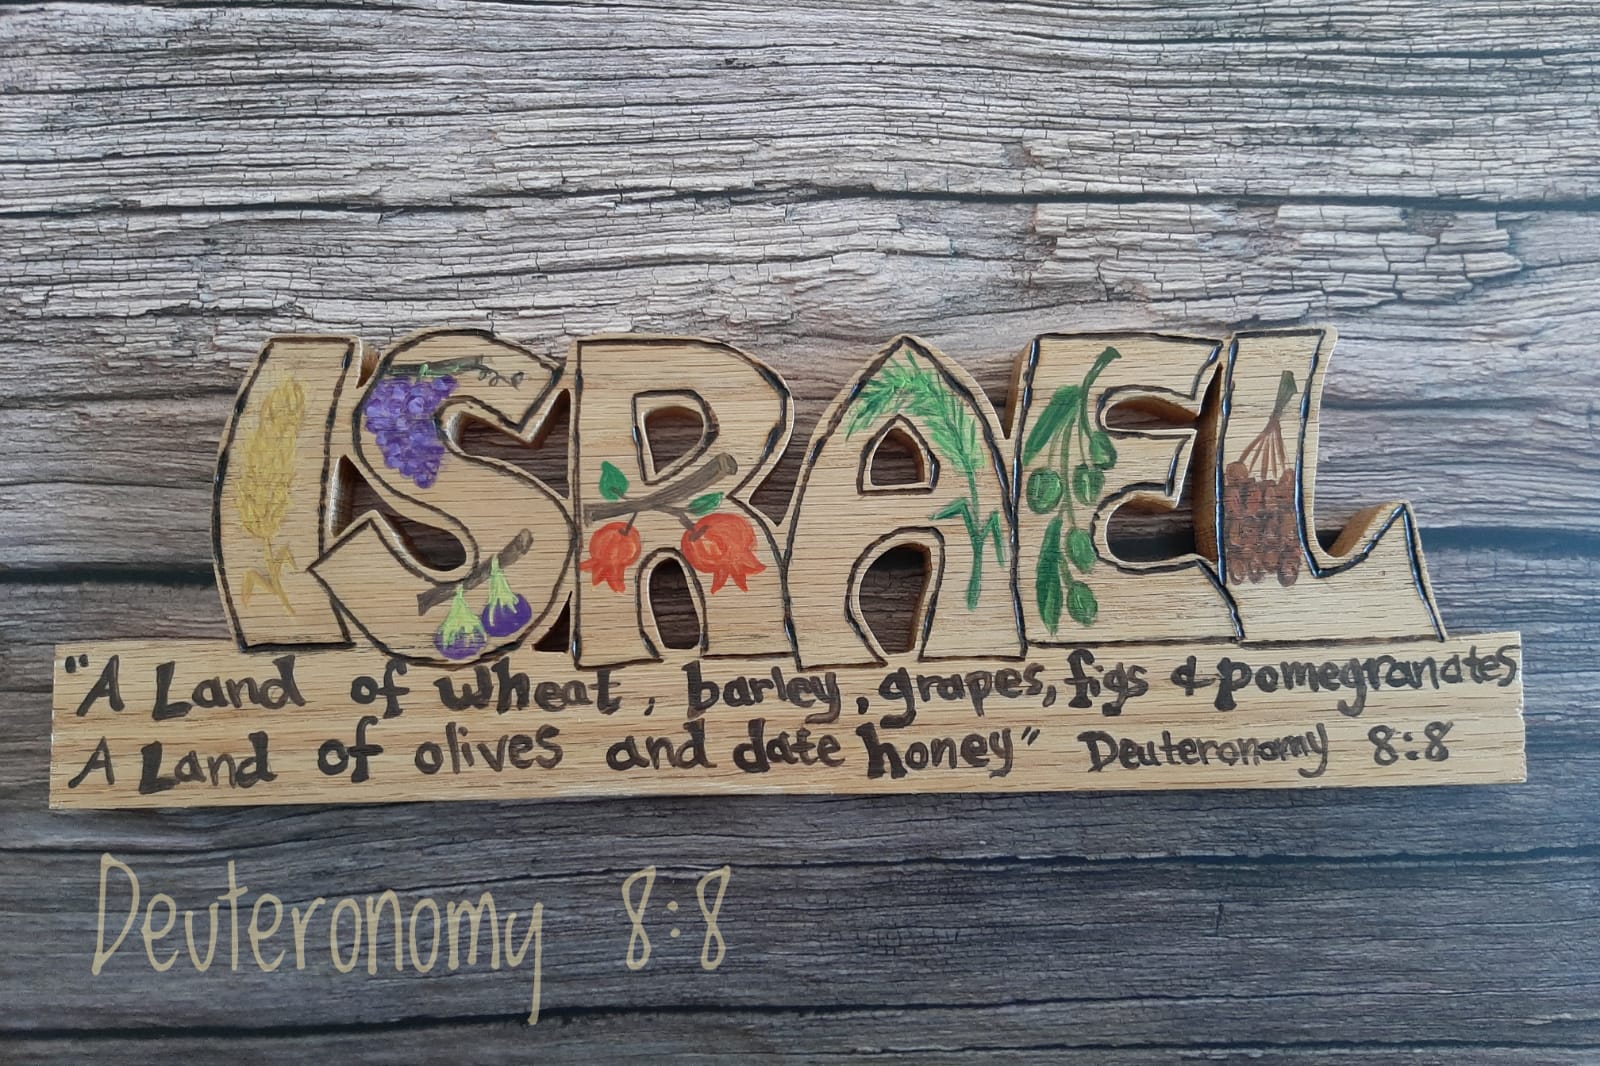 ISRAEL
"A Land of wheat, barley, grapes, figs & pomegranates
A Land of olives and date honey" Deuteronomy 8:8
Deuteronomy 8:8